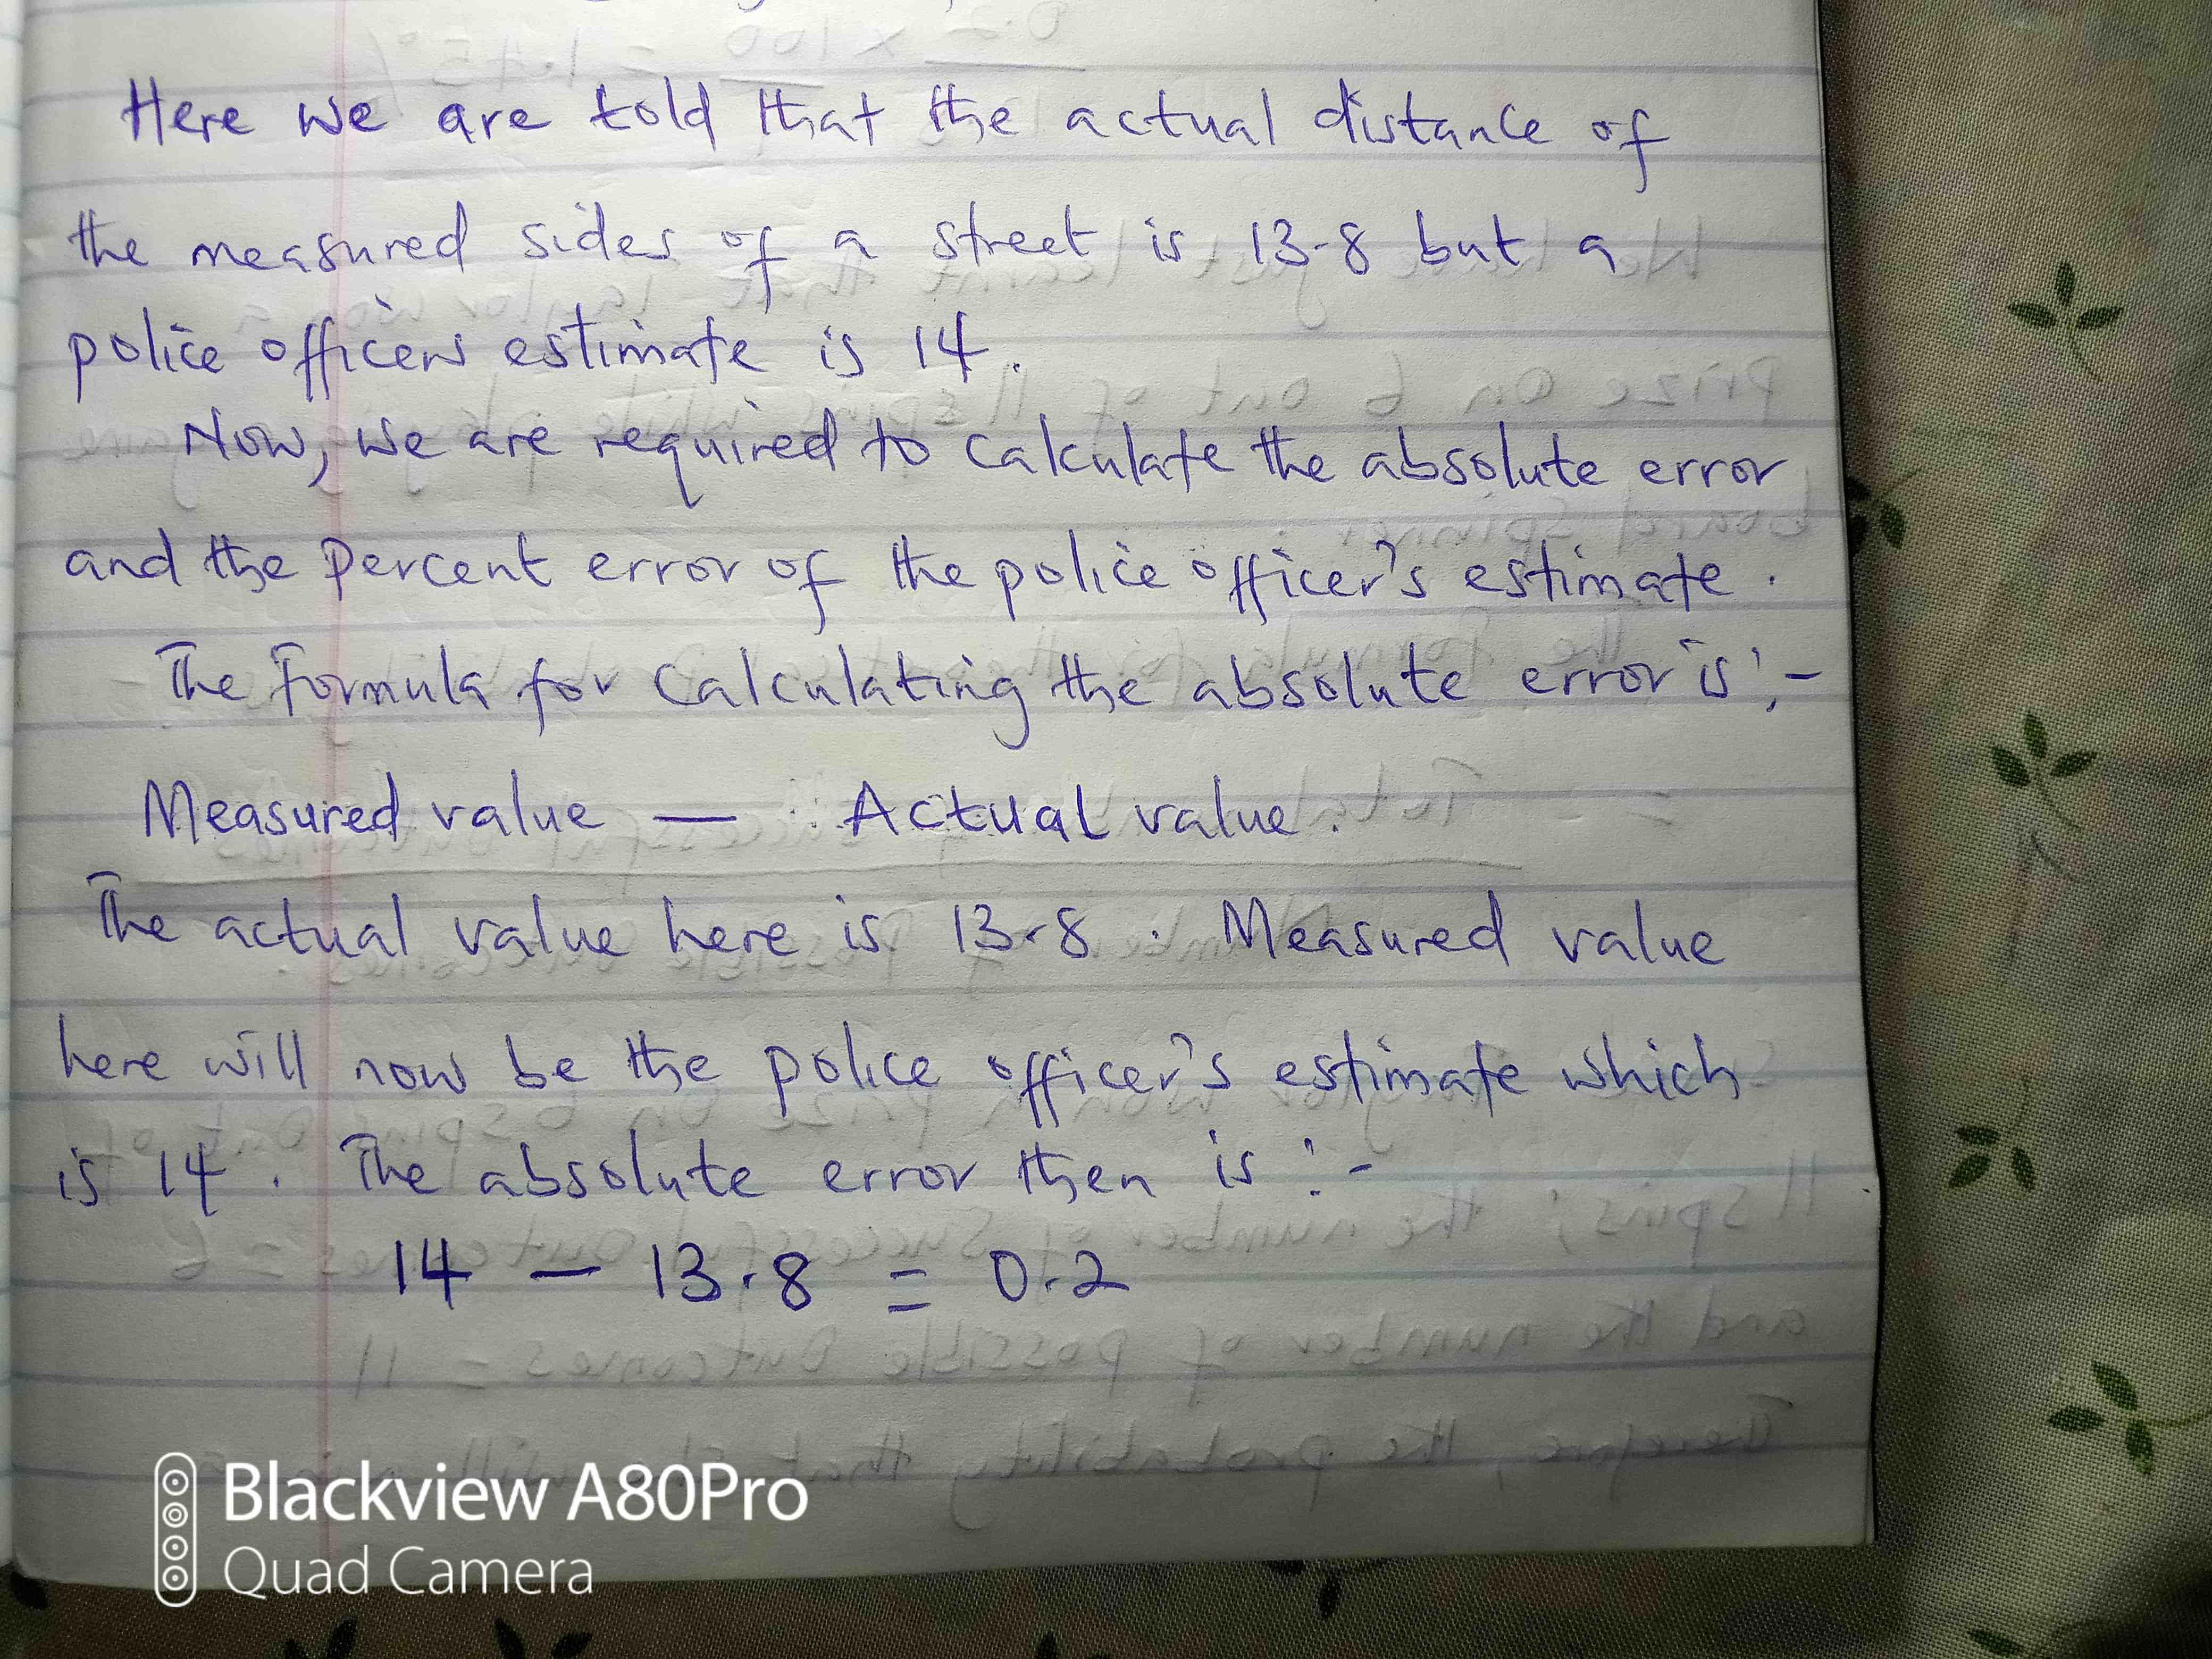 Here we are told that the actual distance of
the measured sides of a street is 13.8 but a
police officers estimate is 14.
Now, we are required to calculate the absolute error
and the Percent error of the police officer's estimate.
The formula for calculating the absolute error is :-
Measured value — Actual value.
The actual value here is 13.8. Measured value
here will now be the police officer's estimate which
is 14. The absolute error then is :-
14 — 13.8 = 0.2
Blackview A80Pro
Quad Camera